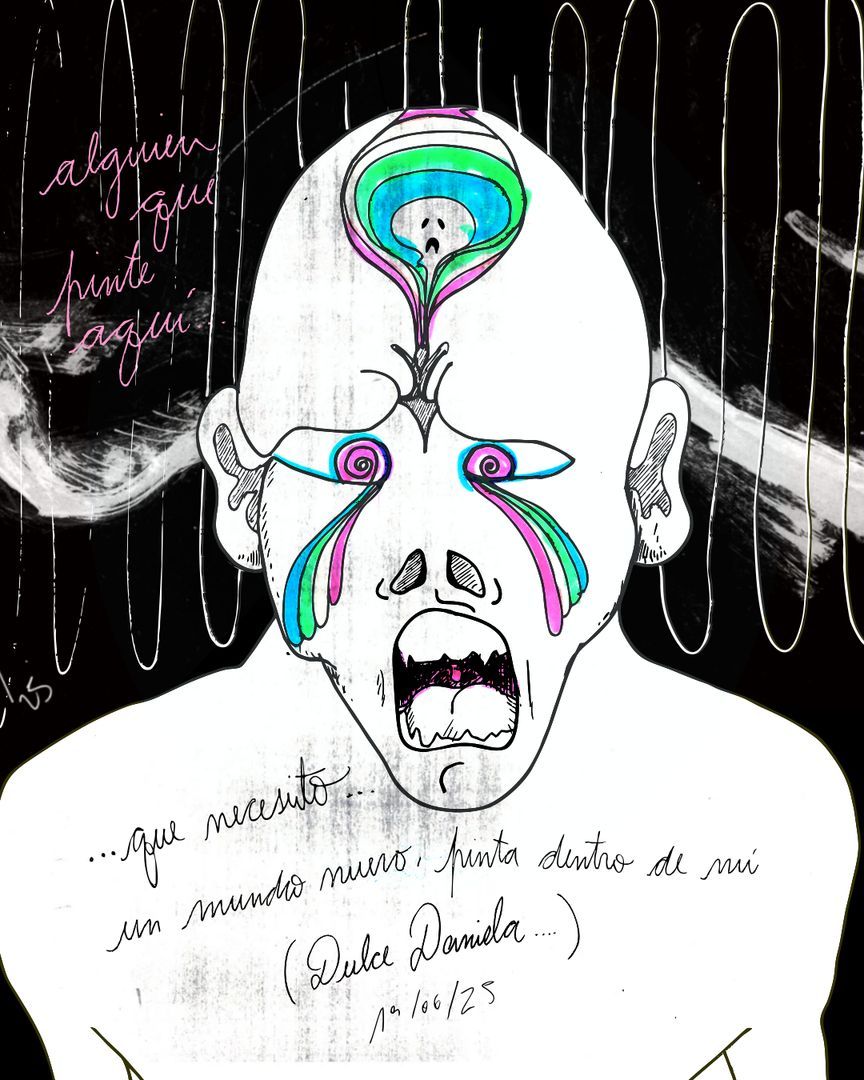 alguien
que
pinte
aquí...
...que necesito...
un mundo nuevo, pinta dentro de mí
(Dulce Daniela....)
1º/06/25